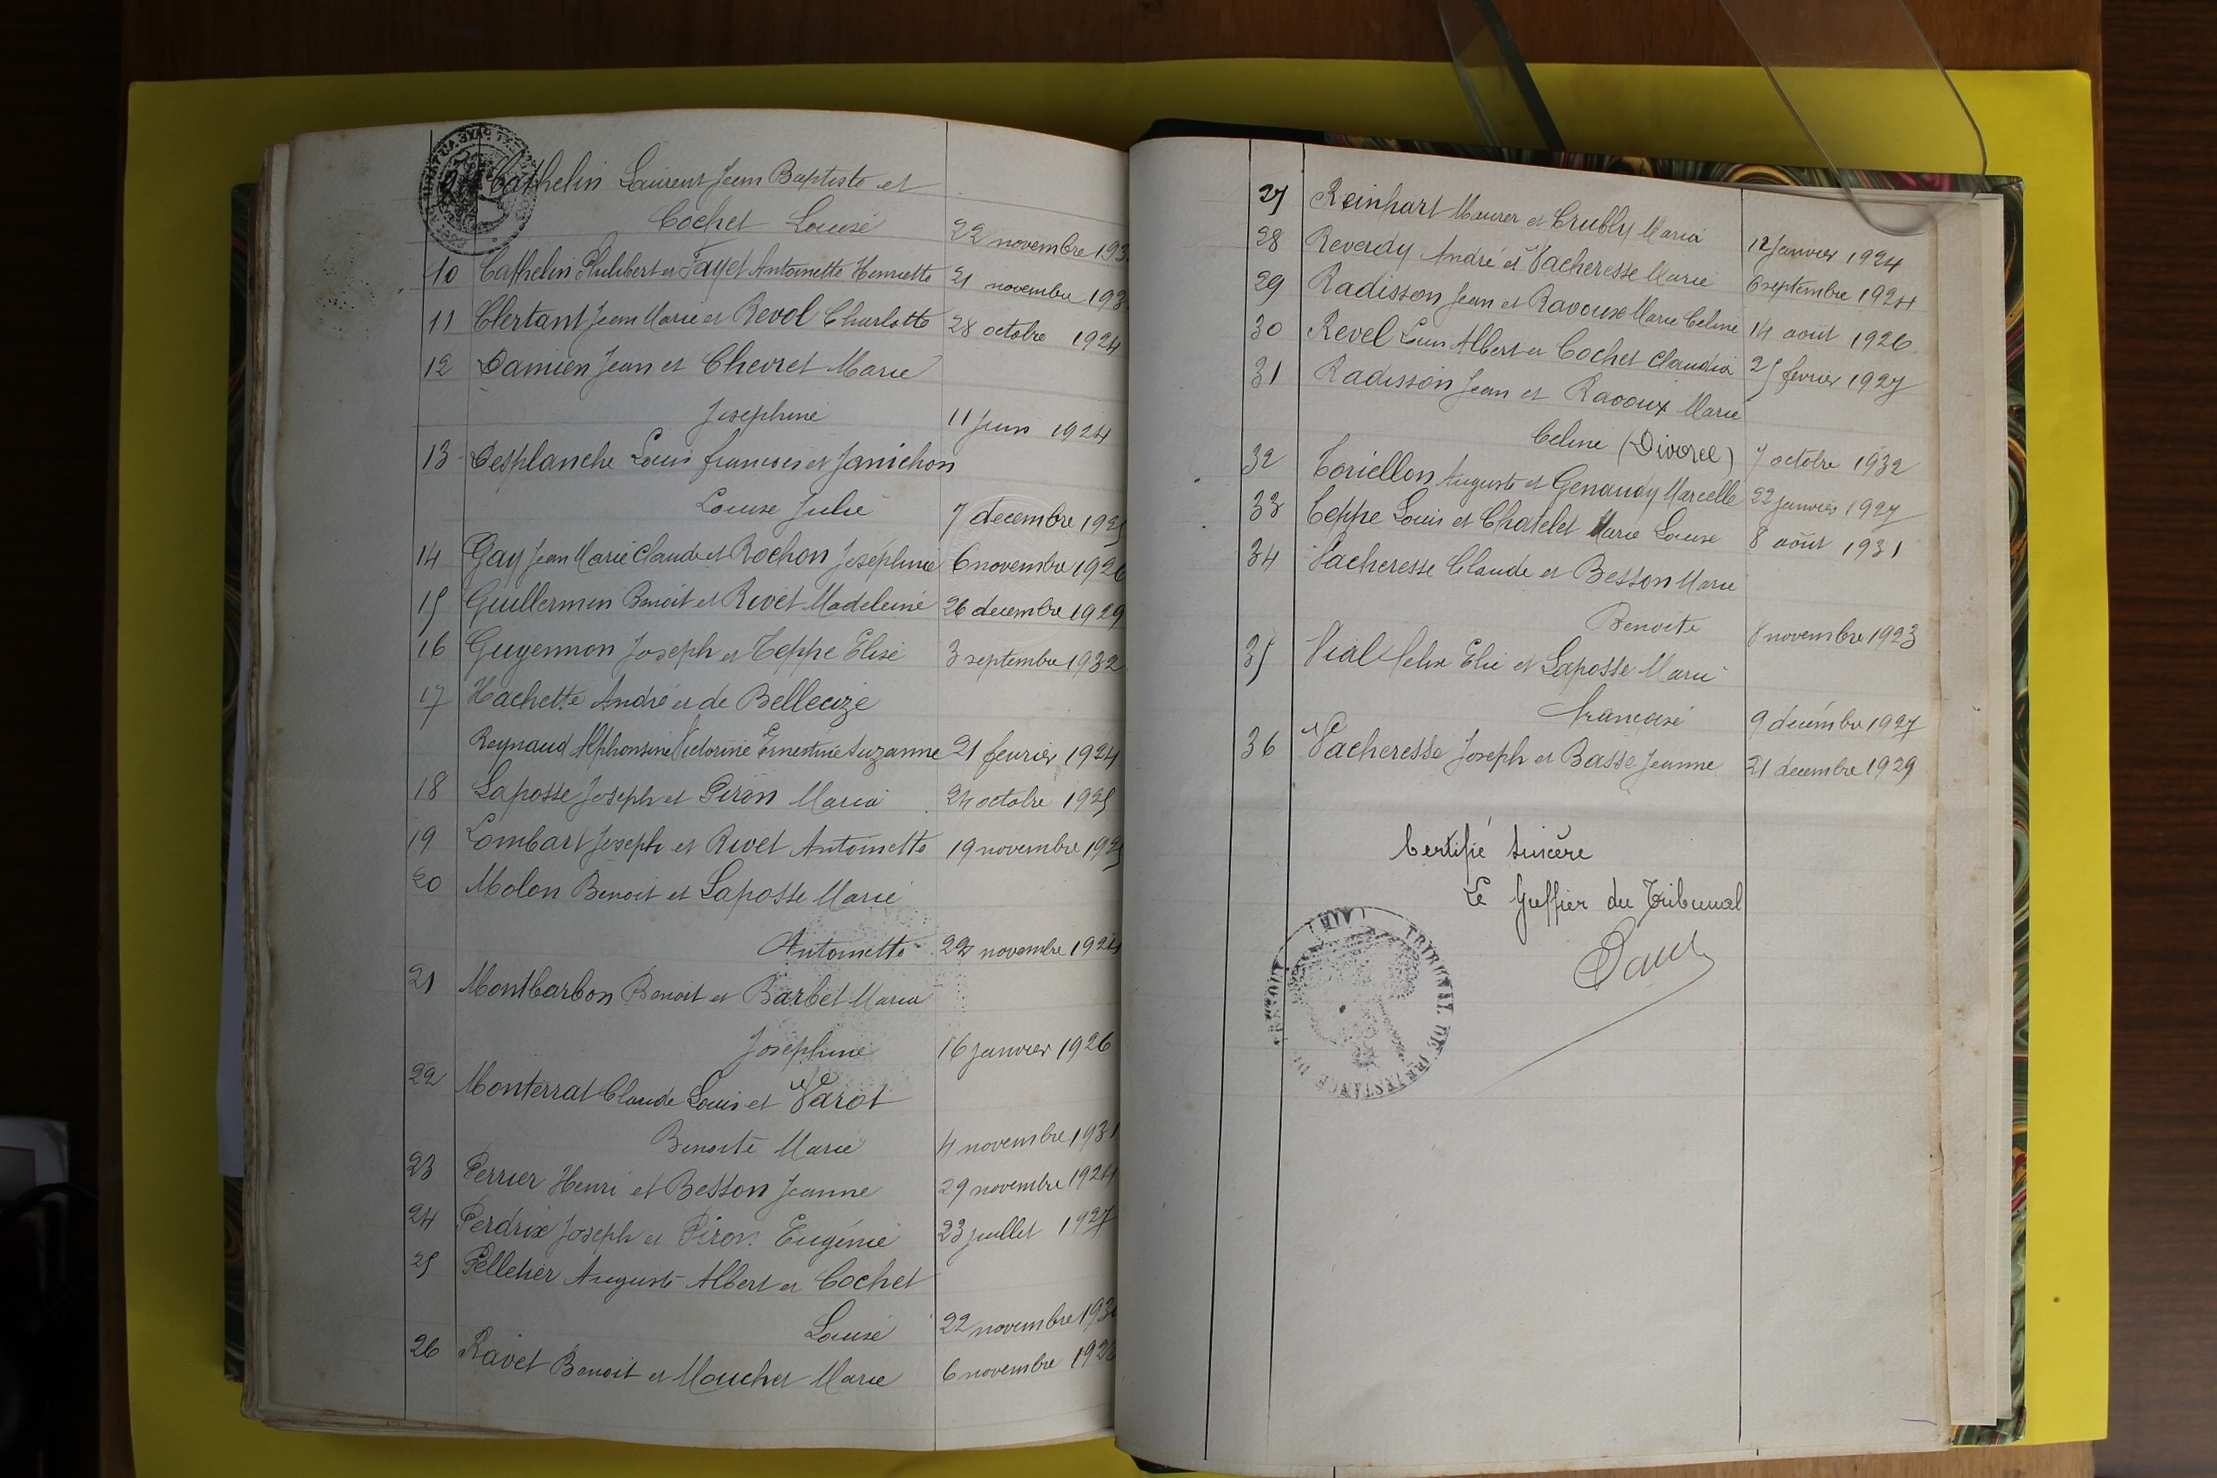 Cathelin Laurent Jean Baptiste et
Cochet Louise 22 novembre 193
10 Cathelin Philibert et Fayet Antoinette Henriette 21 novembre 193
11 Clertant Jean Marie et Revol Charlotte 28 octobre 1924
12 Damien Jean et Chevret Marie
Josephine 11 Juin 1924
13 Desplanche Louis francois et Janichon
Louise Julie 7 decembre 1925
14 Gay Jean Marie Claude et Rochon Joséphine 6 novembre 1926
15 Guillermin Benoit et Rivet Madeleine 26 decembre 1929
16 Guyennon Joseph et Teppe Elise 3 septembre 1932
17 Hachette André et de Bellecize
Reynaud Alphonsine Victorine Ernestine Suzanne 21 fevrier 1924
18 Laposse Joseph et Piron Maria 24 octobre 1925
19 Lombart Joseph et Rivet Antoinette 19 novembre 1925
20 Molon Benoit et Laposse Marie
Antoinette 22 novembre 1924
21 Montbarbon Benoit et Barbet Maria
Joséphine 16 janvier 1926
22 Monterrat Claude Louis et Varot
Benoite Marie 4 novembre 1931
23 Perrier Henri et Besson Jeanne 29 novembre 1924
24 Perdrix Joseph et Piron Eugénie 23 juillet 1927
25 Pelletier Auguste Albert et Cochet
Louise 22 novembre 1930
26 Ravet Benoit et Moucher Marie 6 novembre 1926
27 Reinhart Maurer et Crubly Maria 12 Janvier 1924
28 Reverdy André et Vacheresse Marie 6 septembre 1924
29 Radisson Jean et Ravoux Marie Celine 14 aout 1926
30 Revel Louis Albert et Cochet Claudia 25 fevrier 1927
31 Radisson Jean et Ravoux Marie
Celine (Divorce) 7 octobre 1932
32 Toriellon Auguste et Genaudy Marcelle 22 janvier 1927
33 Teppe Louis et Chatelet Marie Louise 8 août 1931
34 Vacheresse Claude et Besson Marie
Benoite 8 novembre 1923
35 Vial felix Elie et Laposse Marie
francoise 9 decembre 1927
36 Vacheresse Joseph et Basse Jeanne 21 decembre 1929
Certifié sincère
Le Greffier du Tribunal
TRIBUNAL DE 1RE INSTANCE DE